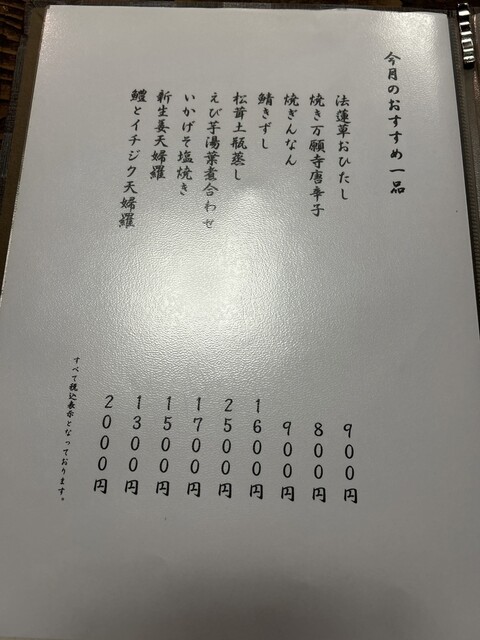 今月のおすすめ一品
法蓮草おひたし 900円
焼き万願寺唐辛子 800円
焼ぎんなん 900円
鯖きずし 1600円
松茸土瓶蒸し 2500円
えび芋湯葉煮合わせ 1700円
いかげそ塩焼き 1500円
新生姜天婦羅 1300円
鱧とイチジク天婦羅 2000円
すべて税込表示となっております。